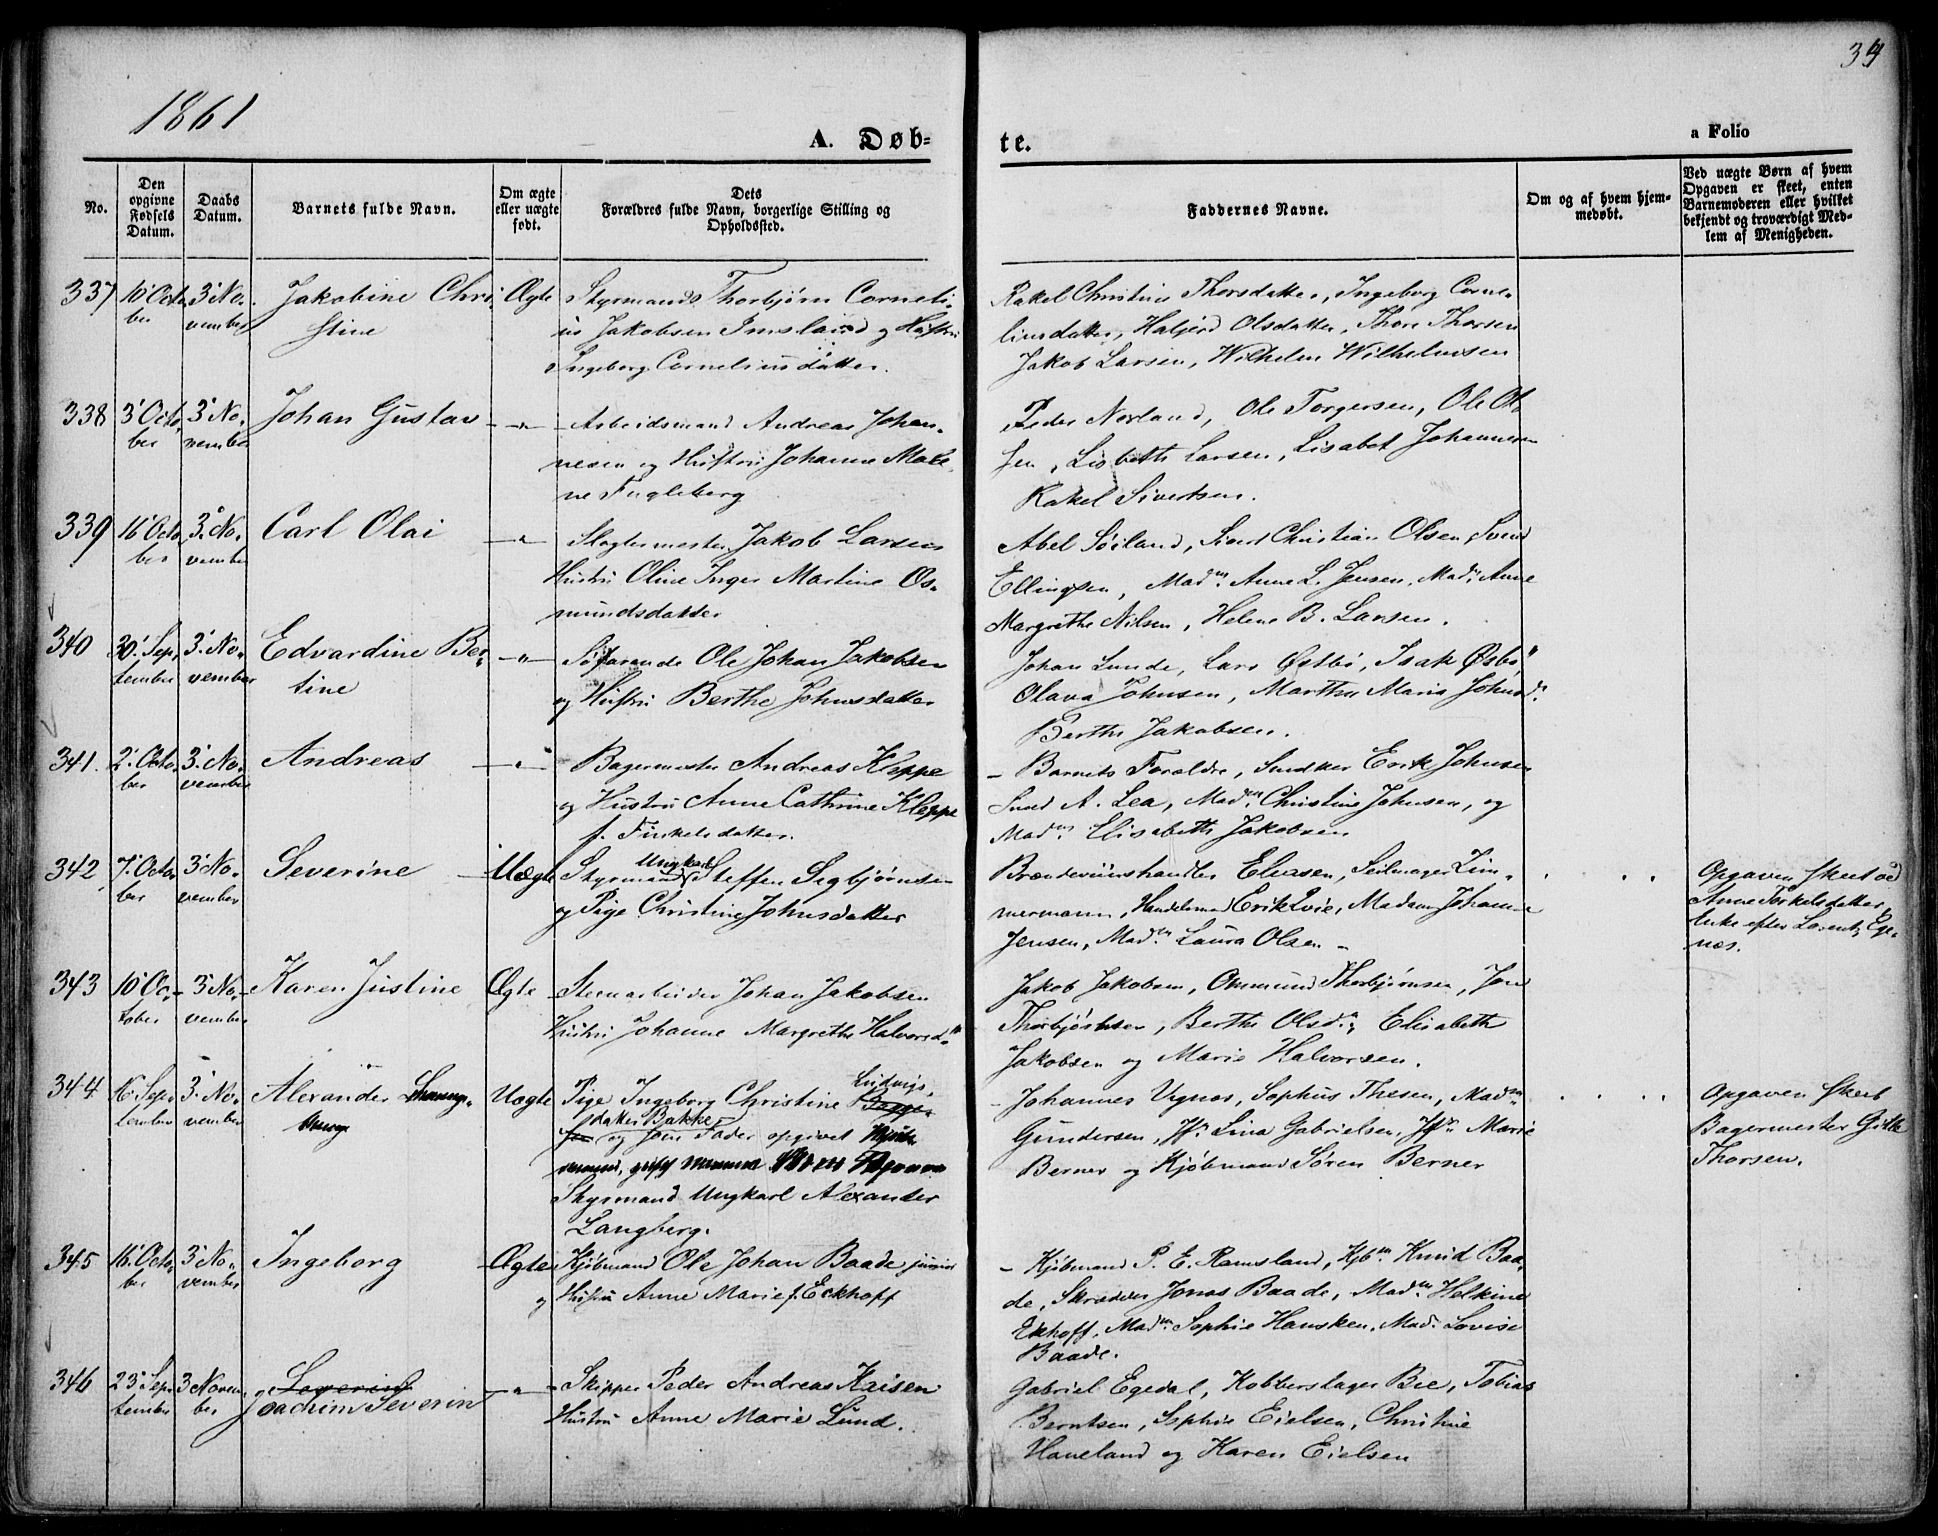 34
1861
A. Døb-
te.
a Folio
No.
Den opgivne Fødsels Datum.
Daabs Datum.
Barnets fulde Navn.
Om ægte eller uægte født.
Dets Forældres fulde Navn, borgerlige Stilling og Opholdssted.
Faddernes Navne.
Om og af hvem hjem-
medøbt.
Ved uægte Børn af hvem
Opgaven er skeet, enten
Barnemoderen eller hvilket
bekjendt og troværdigt Med-
lem af Menigheden.
337 10' Octo- 3' No- Jakobine Chri- Ægte Styrmand Thorbjørn Corneli-
ber vember stine us Jakobsen Imsland og Hustru
Ingeborg Corneliusdatter.
Rakel Christine Thorsdatter, Ingeborg Corne-
liusdatter, Haljerd Olsdatter, Thore Thorsen
Jakob Larsen, Wilhelm Wilhelmsen
338 3' Octo- 3' No- Johan Gustav —"— Arbeidsmand Andreas Johan-
ber vember nesen og Hustru Johanne Male-
ne Fugleberg
Peder Norland, Ole Torgersen, Ole Ol-
sen, Lisbeth Larsen, Lisabet Johannesen
Rakel Sivertsen.
339 16' Octo- 3' No- Carl Olai —"— Slagtermester Jakob Larsen
ber vember Hustru Oline Inger Martine Os-
mundsdatter
Abel Soiland, Christian Olsen, Svend
Ellingsen, Madm. Anne L. Jensen, Mad. Anne
Margrethe Nilsen, Helene B. Larsen.
340 30' Sep- 3' No- Edvardine Ber- —"— Søfarende Ole Johan Jakobsen
tember vember tine og Hustru Berthe Johnsdatter
Johan Lunde, Lars Østbø, Isak Øsbø
Olava Johnsen, Marthe Maria Johnsd.
Berthe Jakobsen.
341. 2' Octo- 3' No- Andreas —"— Bagermester Andreas Kleppe
ber vember og Hustru Anne Cathrine Kleppe
f. Torkelsdatter.
– Barnets Forældre, Snedker Erik Johnsen
Svend A. Lea, Madm. Christine Johnsen, og
Madm. Elisabeth Jakobsen
342 7' Octo- 3' No- Severine Uægte Styrmand Ungkarl Steffen Segbjørnsen
ber vember og Pige Christine Johnsdatter
Brændeviinshandler Eliasen, Seilmager Zim-
mermann, Handelsmand Erik Qvie, Madam Johanne
Jensen, Madm. Laura Olsen –
Opgaven skeet ved
Anne Torkelsdatter,
Enke efter Lorentz Ege-
næs.
343 10' Oc- 3' No- Karen Justine Ægte Steenarbeider Johan Jakobsen
tober vember Hustru Johanne Margrethe Halvorsd.
Jakob Jakobsen, Ommund Thorbjørnsen, Jon
Thorbjørnsen, Berthe Olsd., Elisabeth
Jakobsen og Marie Halvorsen.
344 16' Sep- 3' No- Alexander Uægte Pige Ingeborg Christine Ludvigs-
tember vember datter Bakke
og som Fader opgivet
Styrmand Ungkarl Alexander
Langberg.
– Johannes Vignæs, Sophus Thesen, Madm.
Gundersen, Jfr. Lina Gabrielsen, Jfr. Marie
Berner og Kjøbmand Søren Berner
Opgaven skeet
Bagermester Gitle
Thorsen.
345 16' Octo- 3' No- Ingeborg Ægte Kjøbmand Ole Johan Baade junior
ber vember og Hustru Anne Marie f. Eckhoff
– Kjøbmand P. E. Ramsland, Kjbm. Knud Baa-
de, Skræder Jonas Baade, Madm. Helkine
Ekhoff, Madm. Sophie Hansken, Mad. Lovise
Baade.
346 23' Sep- 3 Novem- Severin —"— Skipper Peder Andreas Kaisen
tember ber Joachim Severin Hustru Anne Marie Lund.
Gabriel Egedal, Kobberslager Bie, Tobias
Berntsen, Sophie Eielsen, Christine
Haneland og Karen Eielsen